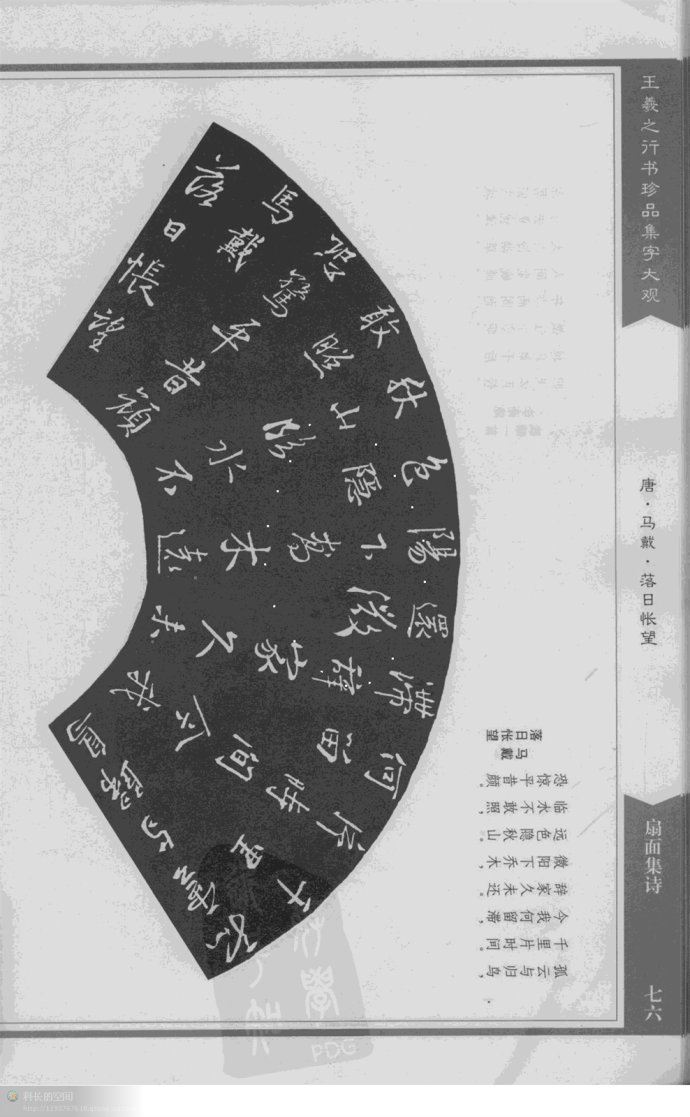 王羲之行书珍品集字大观
唐·马戴·落日怅望
扇面集诗
七六
孤雲與歸鳥
千里
片時間今我
何留
滯辭家久未
還微
陽下喬木遠
色隱
秋山臨水不
敢照
恐驚平昔顏
馬戴
落日悵望
落日怅望
马戴
孤云与归鸟，
千里片时间。
今我何留滞，
辞家久未还。
微阳下乔木，
远色隐秋山。
临水不敢照，
恐惊平昔颜。
PDG
科长的空间